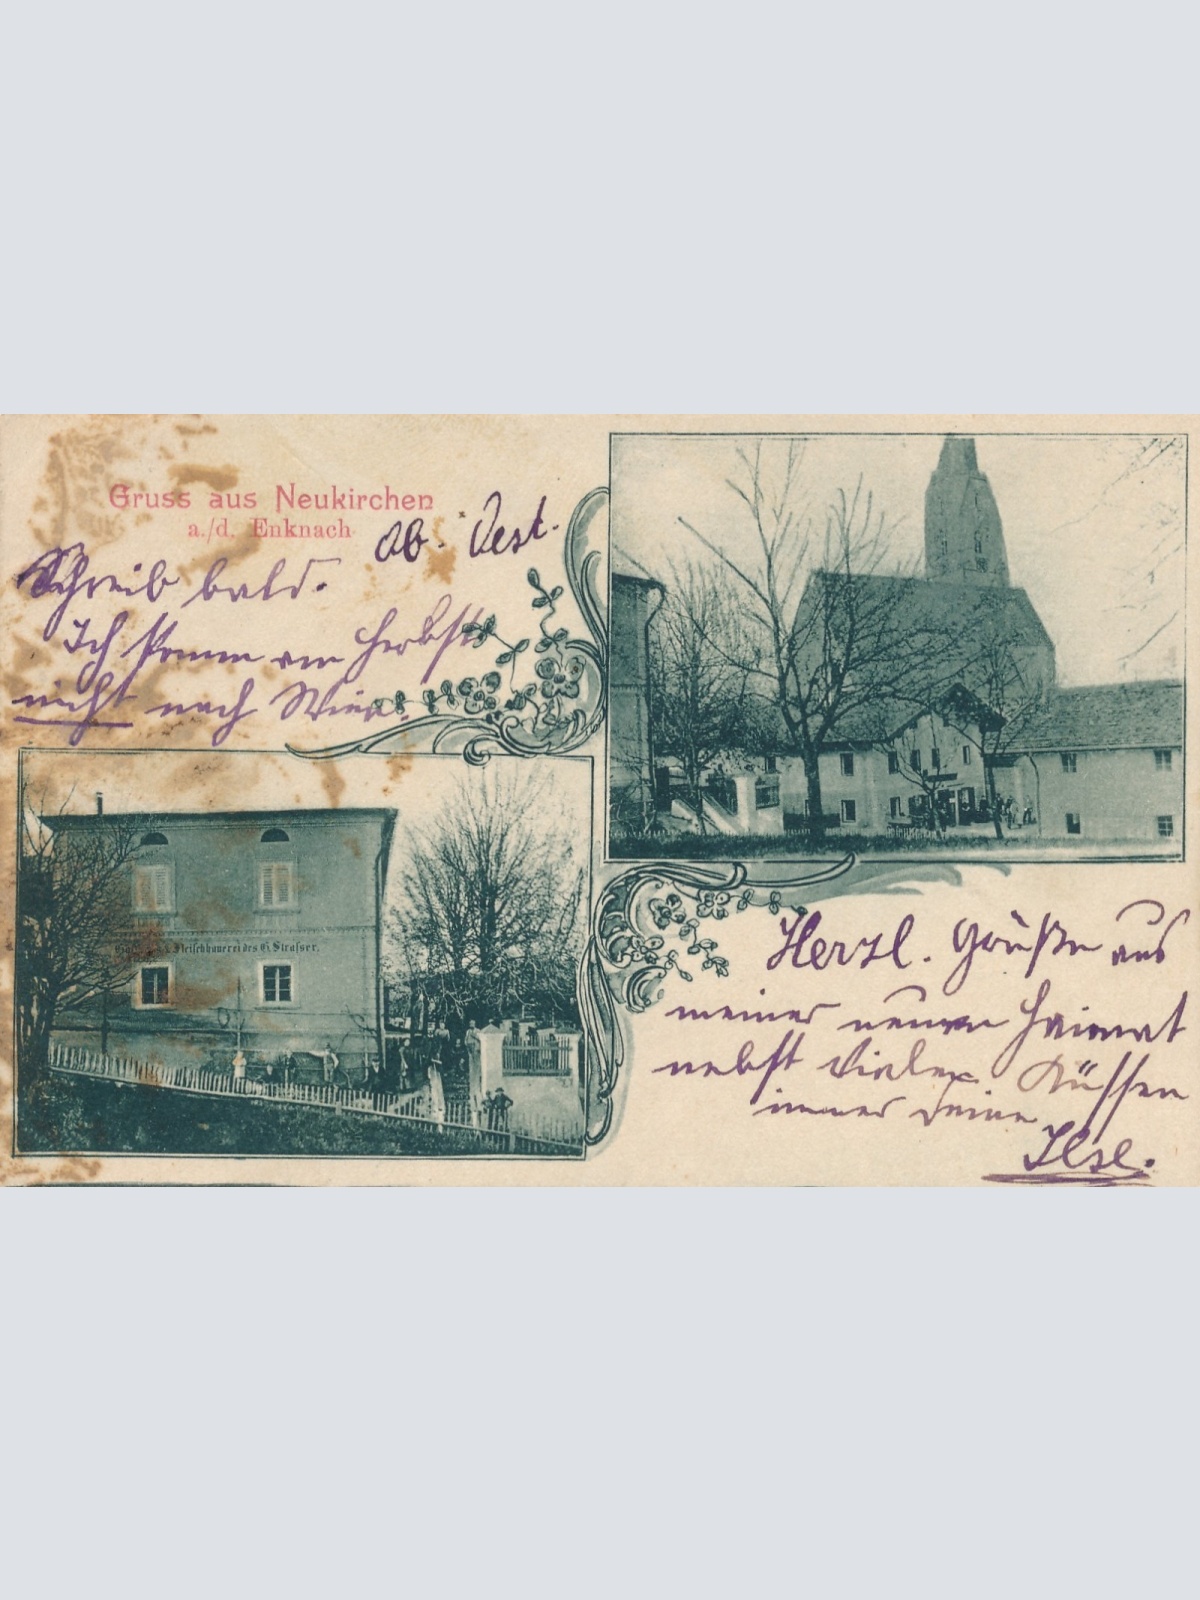 Gruss aus Neukirchen
a./d. Enknach
Ob. Oest.
Schreib bald.
Ich komm am Herbst
nicht nach Wien.
Fleischhauerei des G. Strasser.
Herzl. Grüße aus
meiner neuen Heimat
nebst vielen Küssen
immer deine
Ilse.